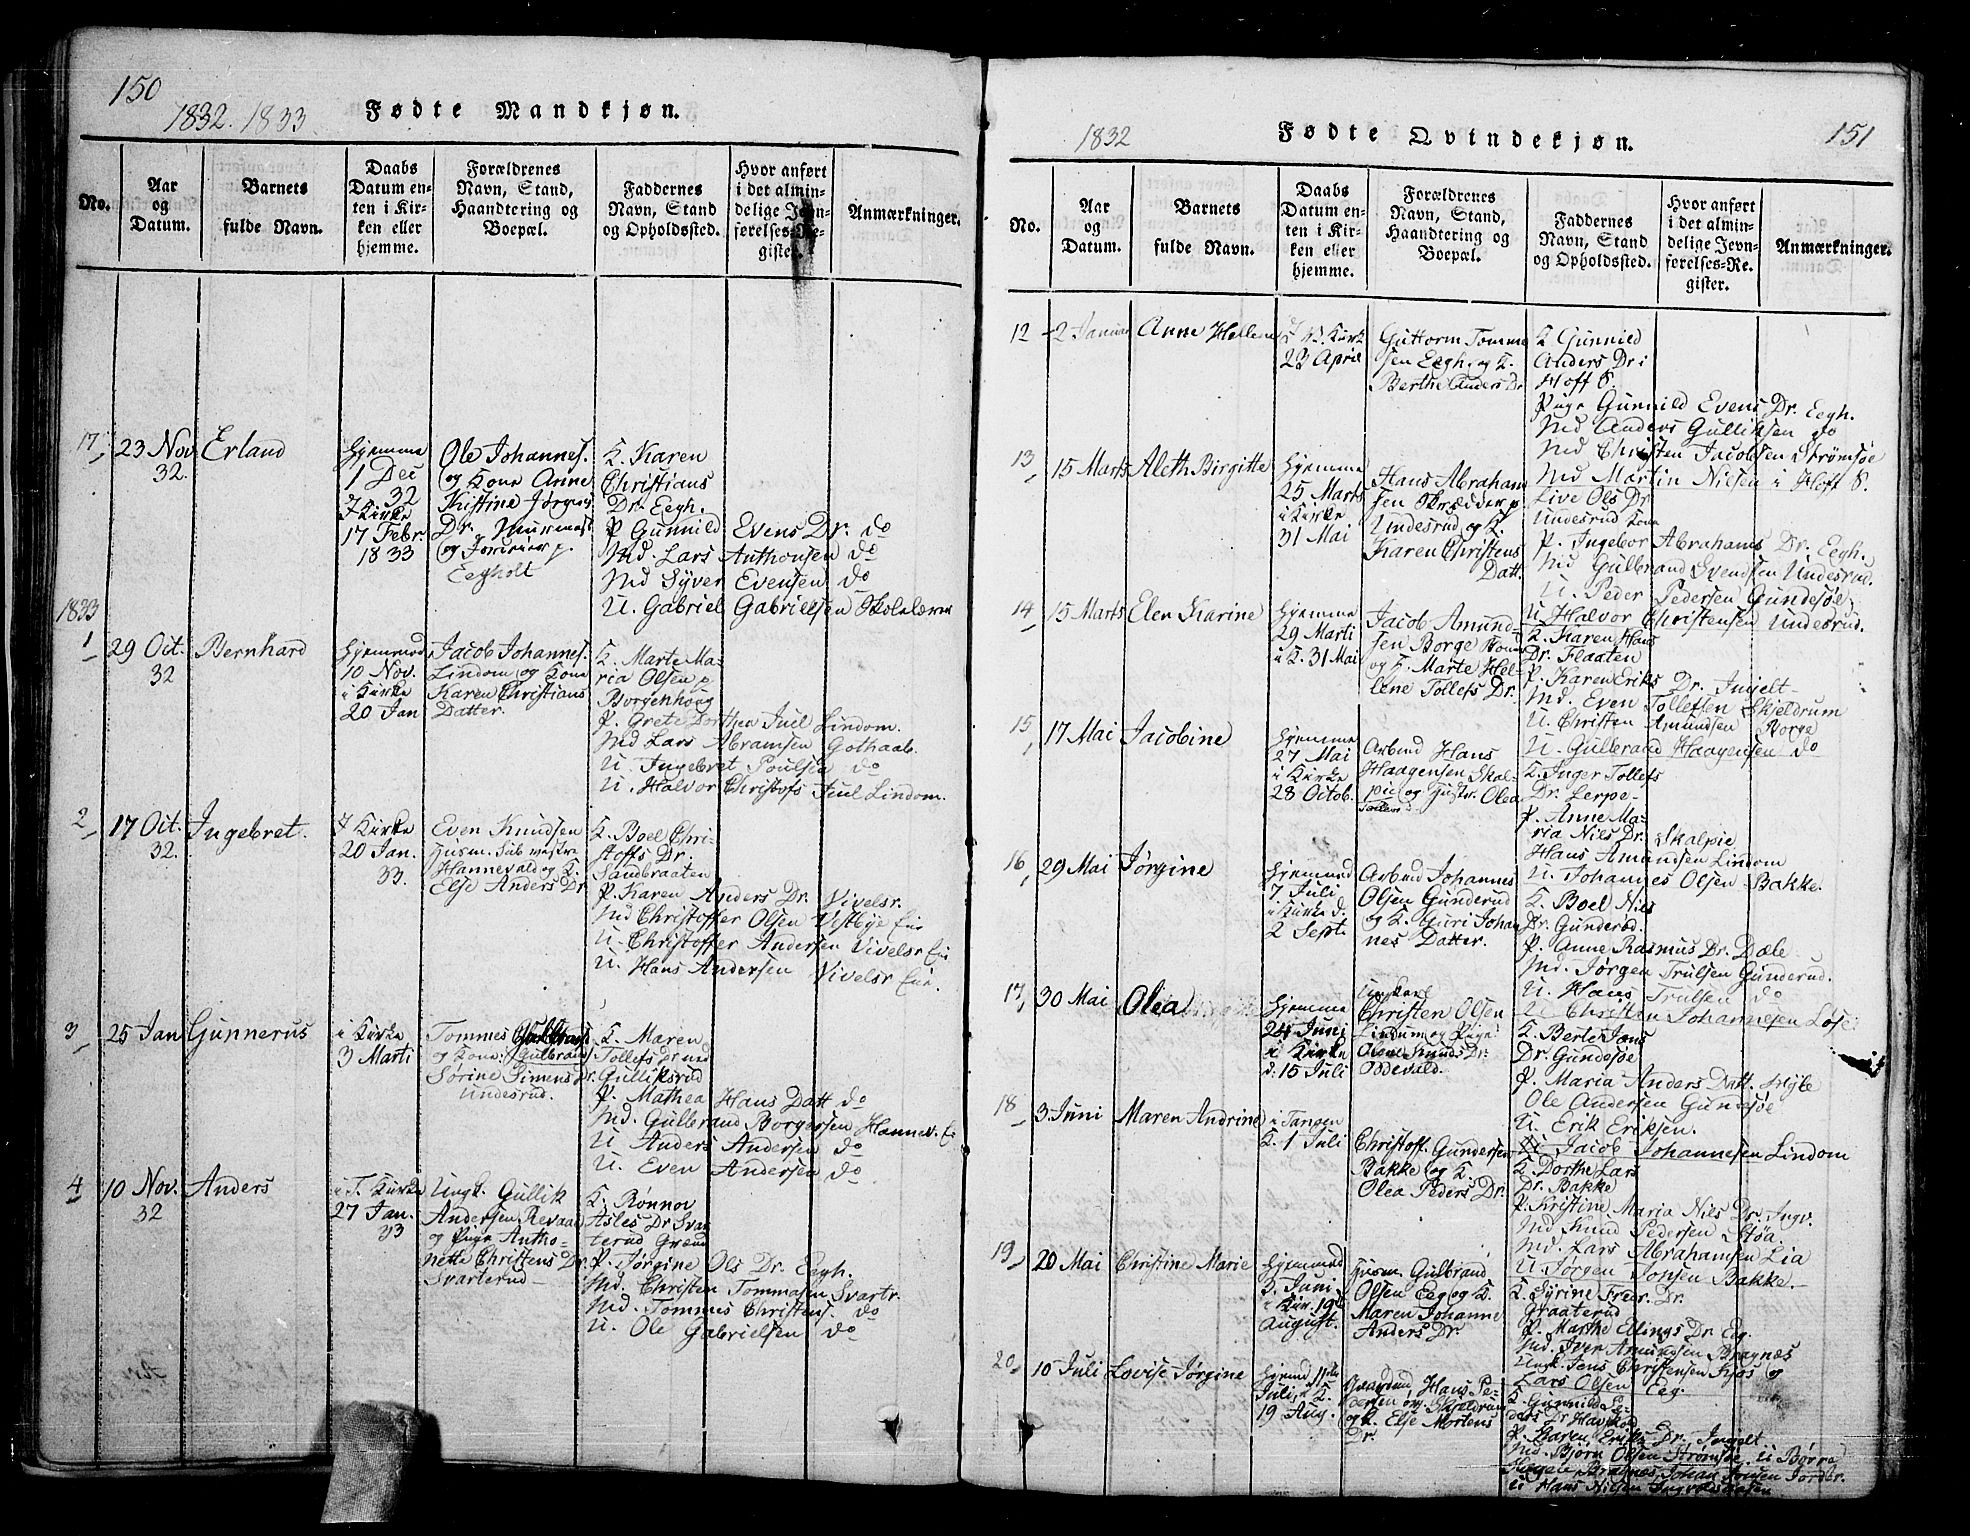 150
1832. 1833.
Fødte Mandkjøn.
No.
Aar
og
Datum.
Barnets
fulde Navn.
Daabs
Datum en-
ten i Kir-
ken eller
hjemme.
Forældrenes
Navn, Stand,
Haandtering og
Boepæl.
Faddernes
Navn, Stand
og Opholdssted.
Hvor anført
i det almin-
delige Jevn-
førelses-Re-
gister.
Anmærkninger.
17,
23 Nov
32.
Erland
Hjemme
1 Dec
32
I Kirke
17 Febr
1833
Ole Johannes.
og Kone Anne
Kistine Jørgens
Dr.
og
Eegholt
K. Karen
Christians
Dr. Eegh.
P. Gunnild Evens Dr. do
Md. Lars Anthonsen do
Md Syver Evensen do
U. Gabriel Gabrielsen Skolelærer
1833
1
29 Oct.
32
Bernhard
Hjemmed
10 Nov.
i Kirke
20 Jan
Jacob Johannes.
Lindom og Kone
Karen Christians
Datter.
K. Marte Ma-
ria Olsen p
Borgenhoug
P. Grete Dorthea Juel Lindom.
Md Lars Abramsen Gothaab.
U. Ingebret Poulsen do
U. Halvor Christofs Juul Lindom.
2,
17 Oct.
32.
Ingebret.
I Kirke
20 Jan.
33.
Even Knudsen
Husm. Sub vestre
Hannevald og K.
Else Anders Dr
K. Boel Chri-
stoffs Dr.
Sandbraaten
P. Karen Anders Dr. Vivelsr.
Md Christoffer Olsen Vestbye Eie
U. Christoffer Andersen Vivelsr Eie
U. Hans Andersen Vivelsr Eie.
3,
25 Jan
Gunnerus
i Kirke
3 Marti
Tommes
og Kone: Gulbrands
Sørine Simens Dr.
Undesrud.
K. Maren
Tollefs Dr
Gulliksrud
P. Mathea Hans Datt do
Md. Gulbrand Borgersen Hannev. Eie
U. Anders Andersen do
U. Even Andersen do
4
10 Nov.
32
Anders
i T. Kirke
27 Jan.
33
Ungk. Gullik
Andersen Revaal
og Pige Antho-
nette Christens Dr.
Svarterud
K. Rønnov
Asles Dr Svar-
terud Grænd
P. Jørgine Ols Dr. Eegh.
Md. Christen Tommasen Svartr.
Md. Tommes Christens. do
U. Ole Gabrielsen do
1832
Fødte Qvindekjøn.
151
No.
Aar
og
Datum.
Barnets
fulde Navn.
Daabs
Datum en-
ten i Kir-
ken eller
hjemme.
Forældrenes
Navn, Stand,
Haandtering og
Boepæl.
Faddernes
Navn, Stand
og Opholdssted.
Hvor anført
i det almin-
delige Jevn-
førelses-Re-
gister.
Anmærkninger.
12
2 Januar
Anne Hellene
Kirke
23 April
Guttorm Tomme
sen Eegh. og K.
Berthe Anders Dr
K Gunnild
Anders Dr i
Hoff S.
Pige Gunnild Evens Dr. Eegh.
Md Anders Gulliksen do
Md Christen Jacobsen Strømsøe
Md Martin Nielsen i Hoff S.
13,
15 Marts
Aleth Birgitte
Hjemme
25 Marts
i Kirke
31 Mai
Hans Abraham
sen Skrædder p
Undesrud og K.
Karen Christens
Datt.
Live Ols Dr
Undesrud Kone
P. Ingebor Abrahams Dr. Eegh.
Md Gulbrand Svendsen Undesrud.
U. Peder Pedersen Gundesøe
U. Halvor Christensen Undesrud.
14
15 Marts
Elen Karine
Hjemme
29 Marti
i K. 31 Mai
Jacob Amund-
sen Borge
og K. Marte Hel-
lene Tollefs Dr.
K. Karen Hans
Dr. Flaaten
P. Karen Eriks Dr. Ingelt-
Md. Even Tollefsen Skjeldrum
U. Christen Amundsen Borge
U. Gulbrand Haagensen do
15
17 Mai
Jacobine
Hjemme
27 Mai
i Kirke
28 Octob.
Arbmd Hans
Haagensen Skal-
pie og Hustr. Olea
K. Inger Tollefs
Dr. Lerpe-
P. Anne Ma-
ria Niels Dr. Skalpie
Hans Amundsen Lindom
U. Johannes Olsen Bakke.
16,
29 Mai
Jørgine
Hjemmed
7. Juli
i Kirke d.
2 Septe
Arbmd Johannes
Olsen Gunderud
og K. Guri Johan
nes Datter.
K. Boel Niels
Dr. Gunderud.
P. Anne Rasmus Dr. Dæle
Md. Jørgen Trulsen Gunderud.
U. Hans Trulsen do
U. Christen Johannesen Løse
17,
30 Mai
Olea
Hjemme
24 Juni
i Kirke
d. 15 Juli
Ungkarl
Christen Olsen
Lindum og Pige
Olea Knuds Dr.
Oddevald.
K Berte Jans
Dr. Gundesøe
P. Maria Anders Datt. Myle
Ole Andersen Gundesøe
U. Erik Eriksen.
U. Jacob Johannesen Lindom
18
3 Juni
Maren Andrine
i Tangen
K. 1 Juli
Christoff. Gundersen
Bakke og K.
Olea Peders Dr.
K Dorthe Lars
Dr. Bakke
P. Kristine Maria Niels Dr. Ingv.
Md Knud Pedersen Støa.
Md. Lars Abrahamsen Lia
U. Jørgen Jonsen Bakke.
19,
20 Mai
Christine Marie
Hjemmed
3. Juni
i Kir. 19de
August.
Husm Gulbrand
Olsen Eeg og K.
Maren Johanne
Anders Dr.
K. Syrine Fredr. Dr.
Haaterud
P. Marthe Ellings Dr Eeg.
Md. Iver Amundsen Bragnæs
Ungk. Jens Christensen Kjøs og
Lars Olsen Eeg.
20,
10 Juli
Lovise Jørgine
Hjemd 11te
Juli, i K.
19 Aug.
Gaardmd Hans Pe-
dersen Skjeldrum
og K. Else Mortens
Dr.
K. Gunnild Pe-
ders Dr
P. Karen Eriks Dr. Ingelt
Md. Bjørn Olsen Strømsøe, U Børre
Bragnes, Johan Jonsen
U Hans Nielsen